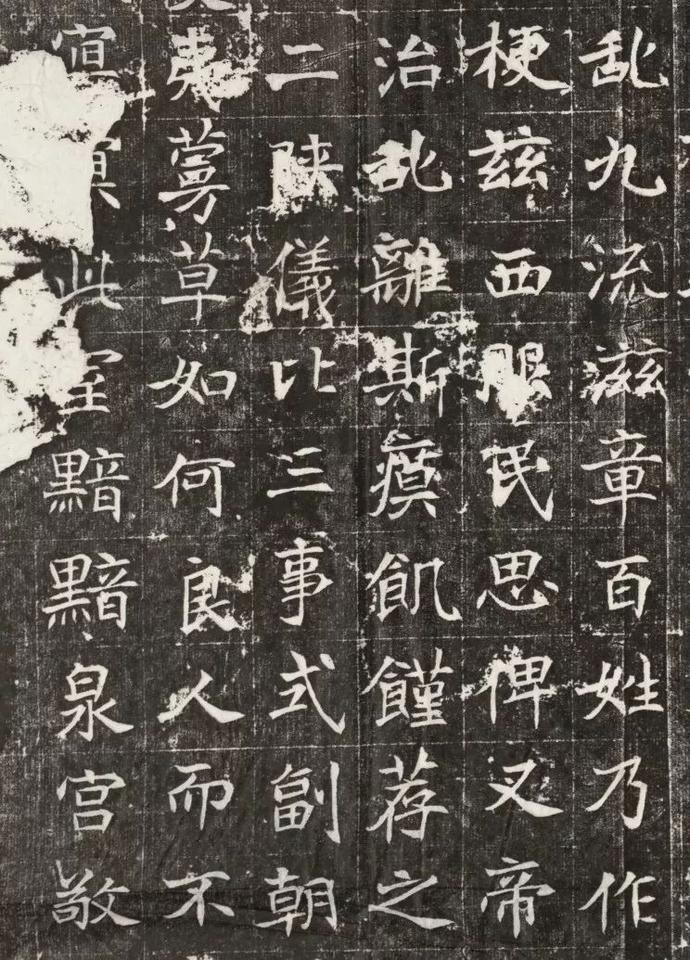 乱九流滋章百姓乃作
梗兹西服民思俾乂帝
治乱離斯瘼飢饉荐之
二陕儀比三事式副朝
夷蒡草如何良人而不
宣 此室黯黯泉宫敬